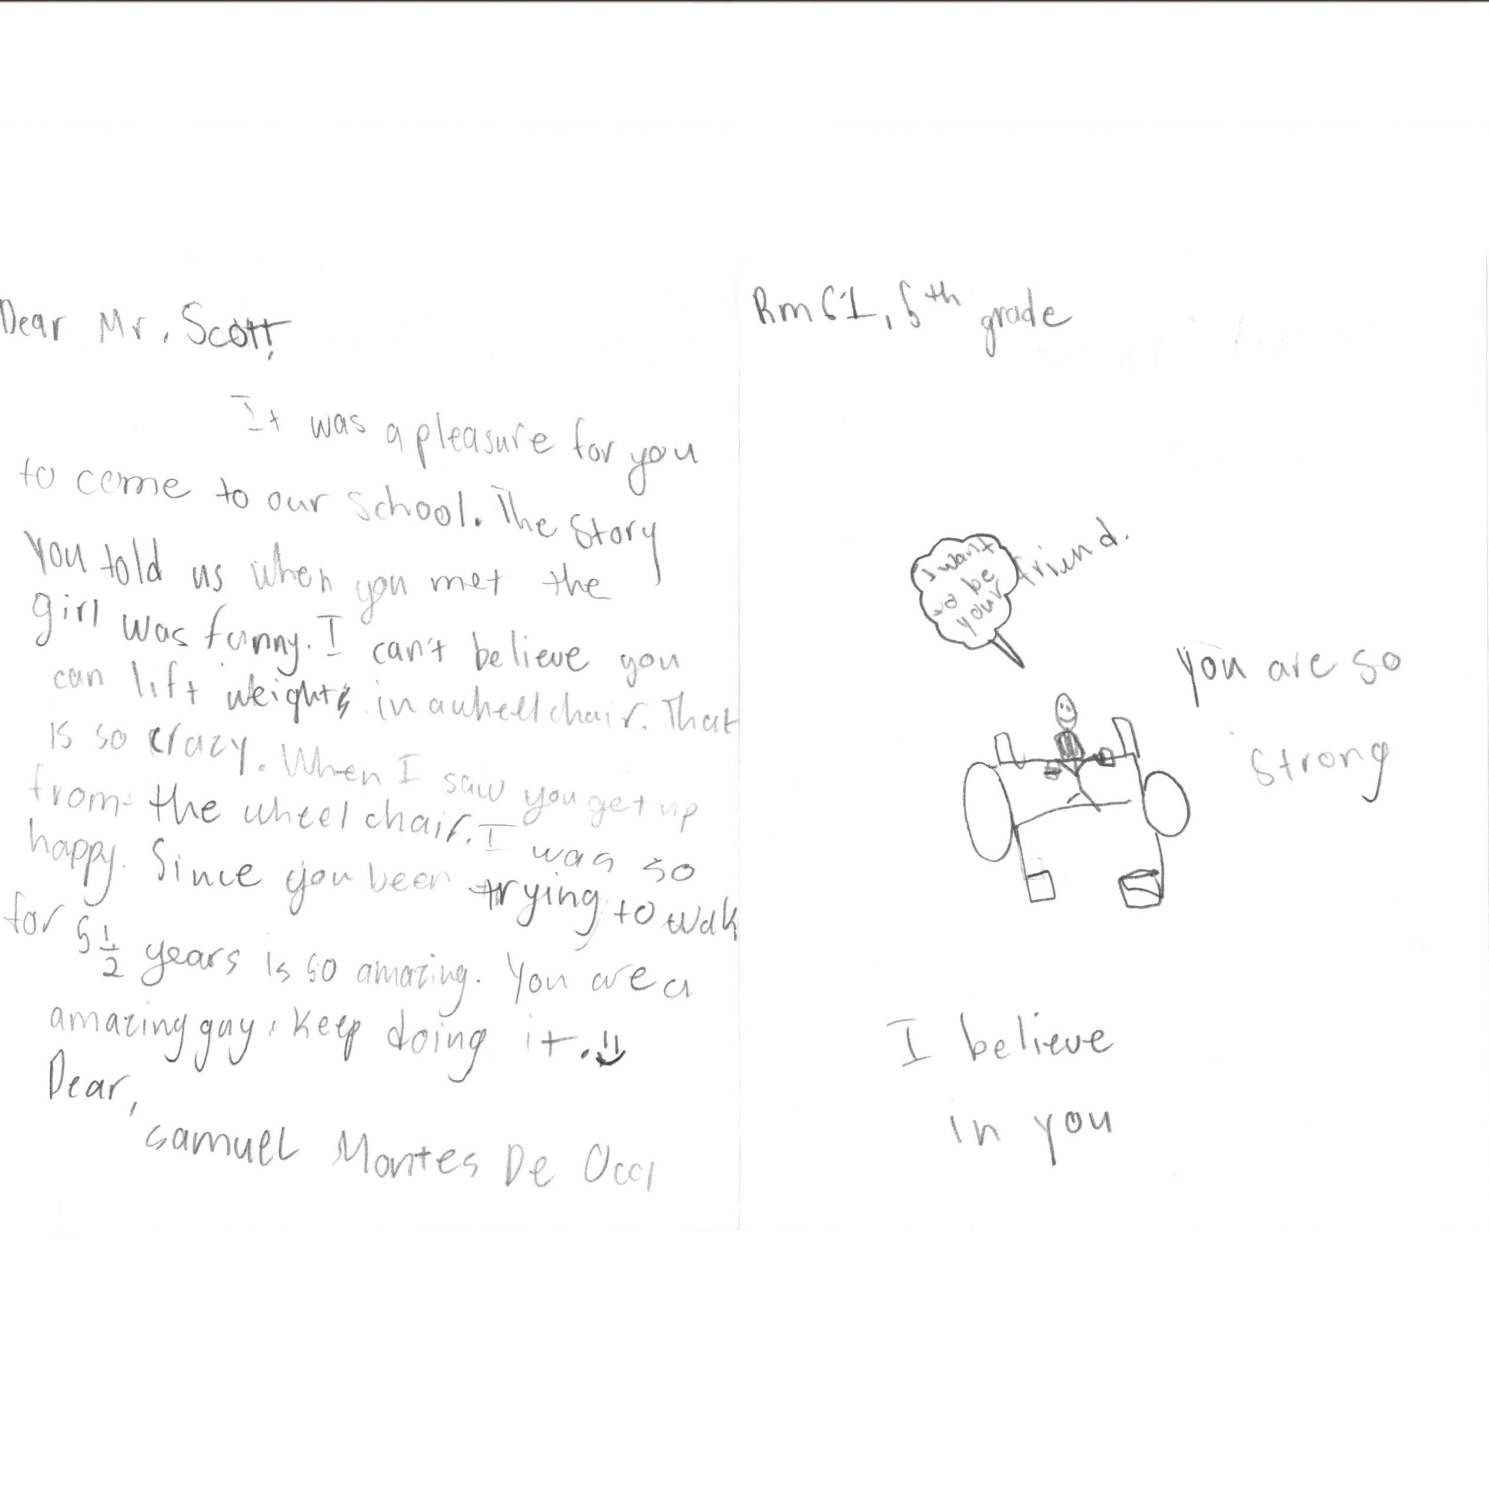 Dear Mr. Scott,
It was a pleasure for you
to come to our school. The story
you told us when you met the
girl was funny. I can't believe you
can lift weights in a wheelchair. That
is so crazy. When I saw you get up
from the wheelchair. I was so
happy. Since you been trying to walk
for 5 1/2 years is so amazing. You are a
amazing guy. Keep doing it.
Dear,
Samuel Montes De
Rm 61, 6th grade
I want
to be
your friend.
You are so
strong
I believe
in you